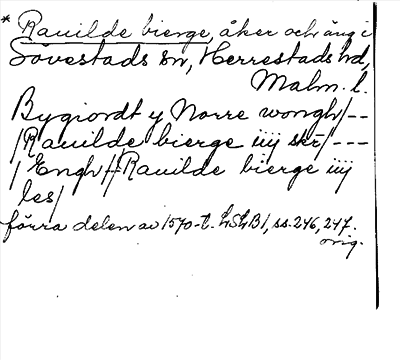 * Rauilde bierge, åker och äng i
Sövestads sn, Herrestads hd,
Malm. l.
Bygiordt y Norre wongh/--
/Rauilde bierge iiij skr/---
/Engh/-/Rauilde bierge iiij
les/
förra delen av 1570-t. LSLB1, ss. 246, 247.
orig.